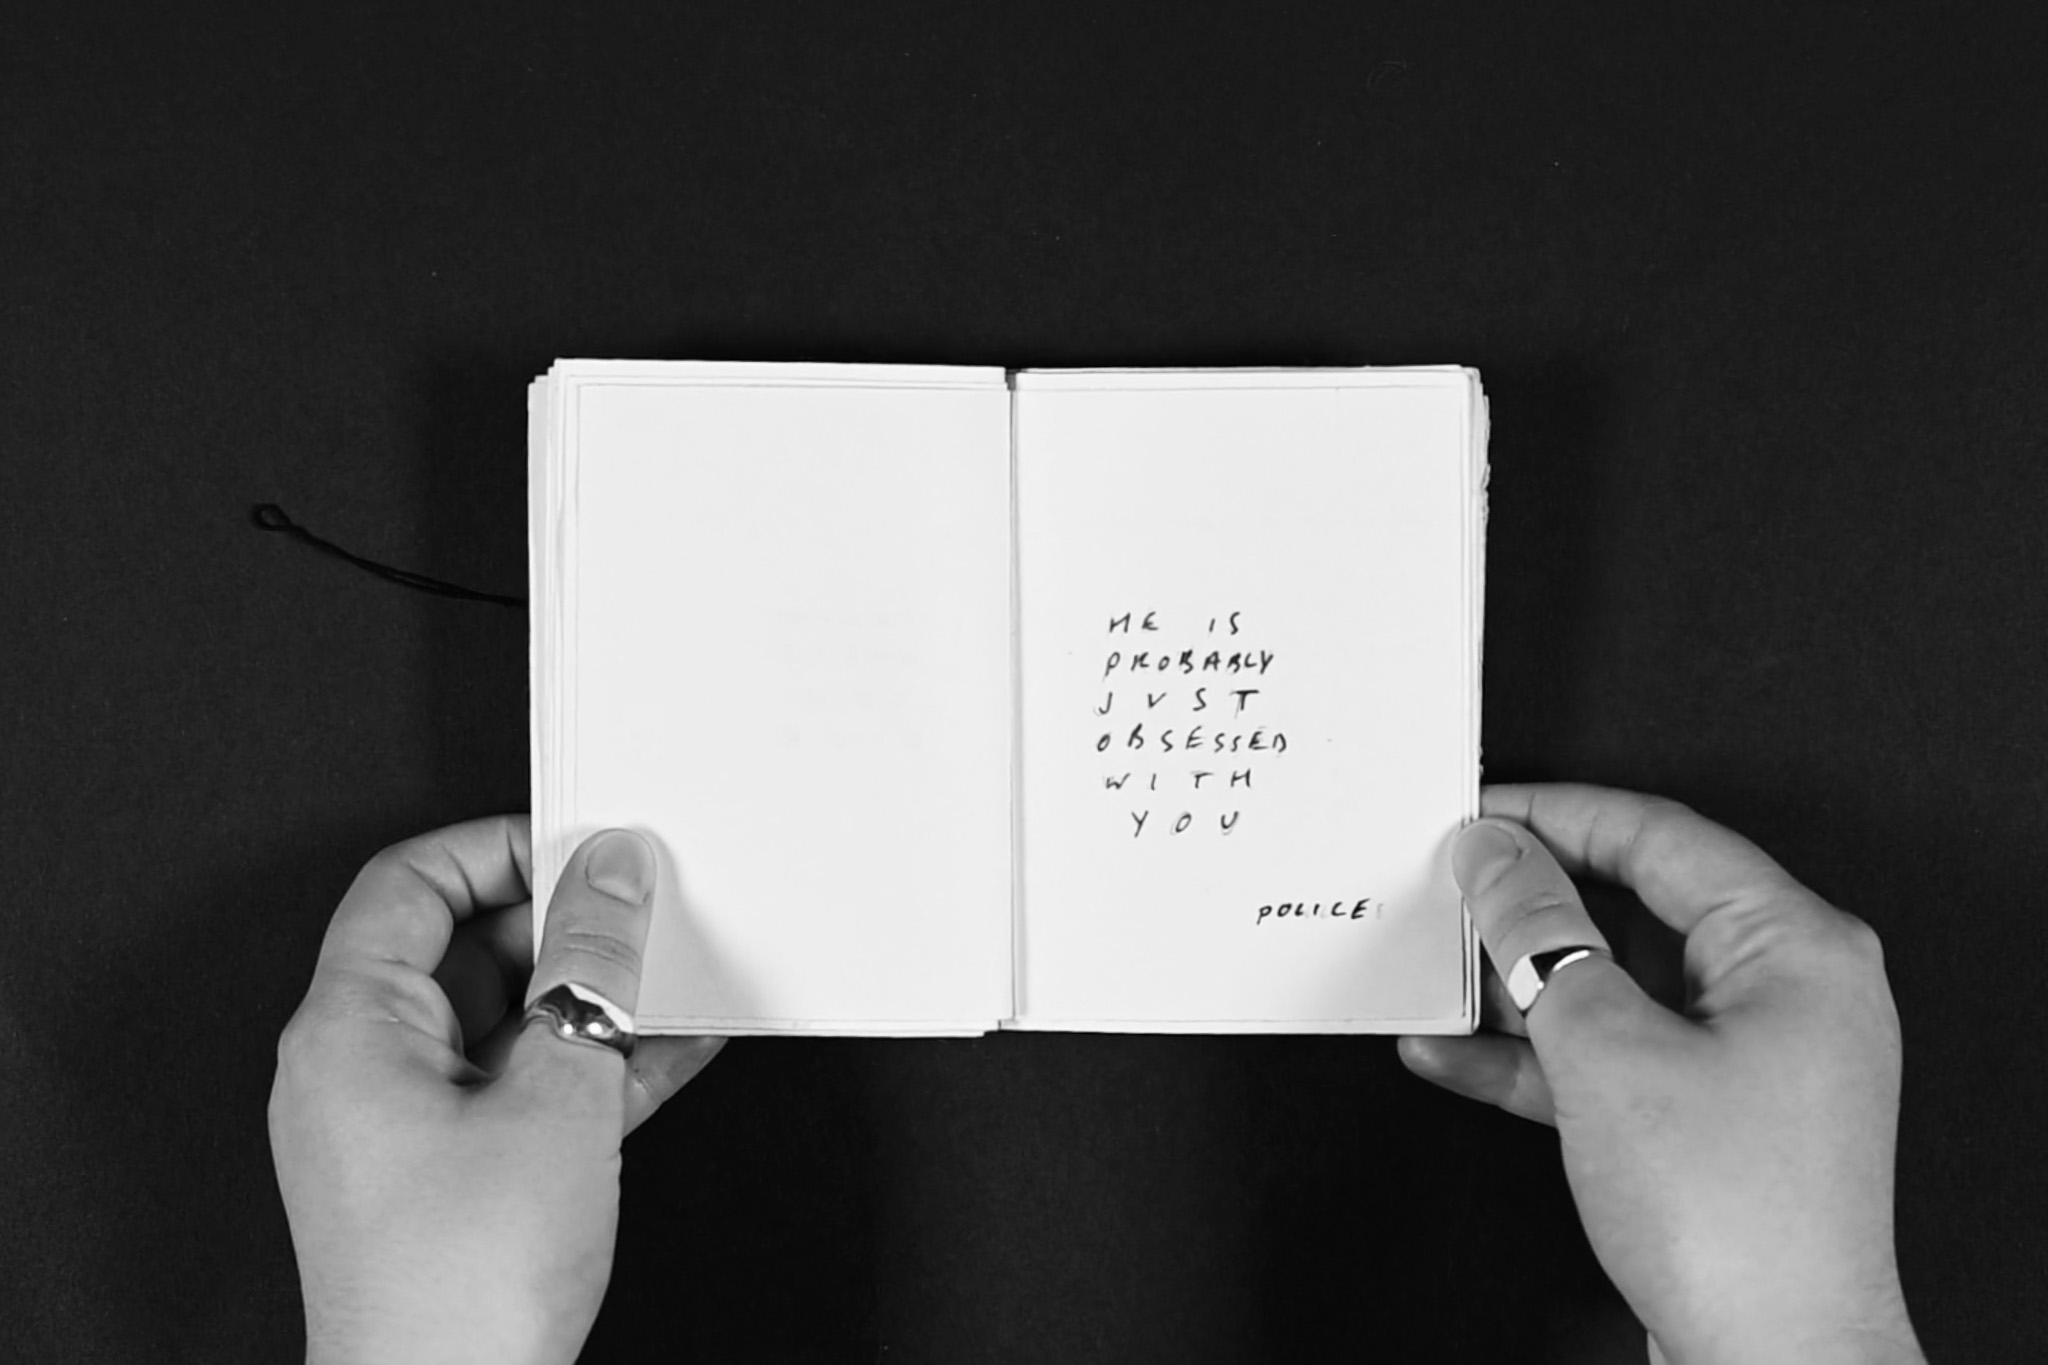 HE IS
PROBABLY
JUST
OBSESSED
WITH
YOU
POLICE